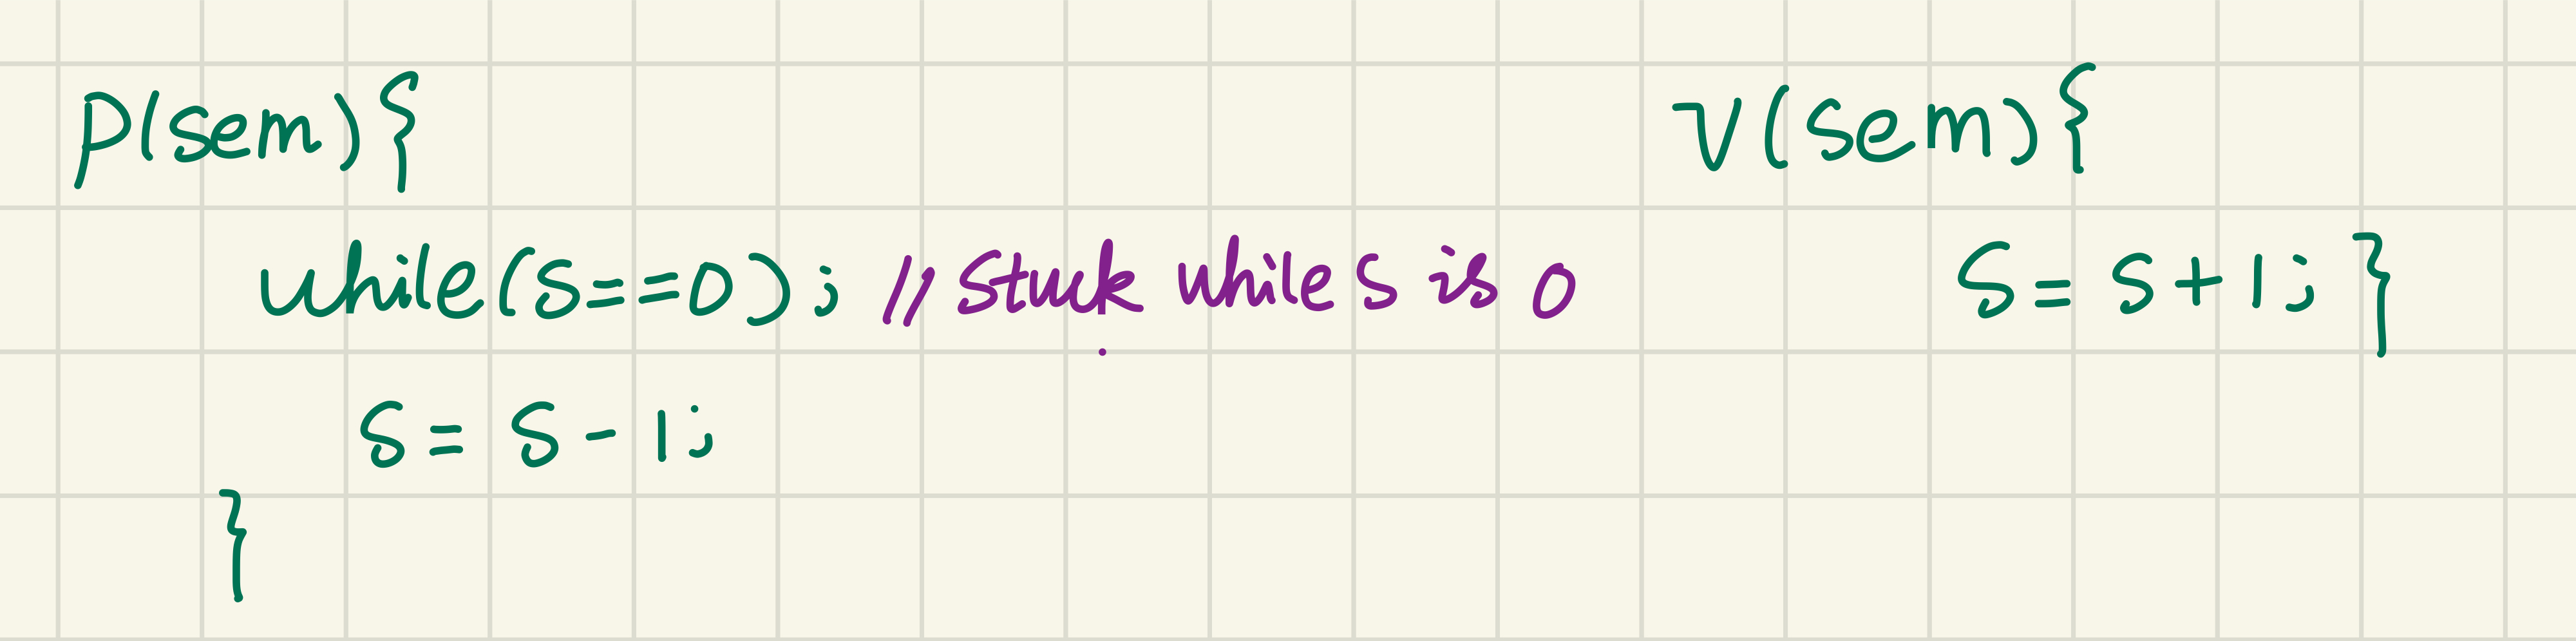 P(sem){
while(s==0); // stuck while s is 0
s = s - 1;
}
V(sem){
s = s + 1; }